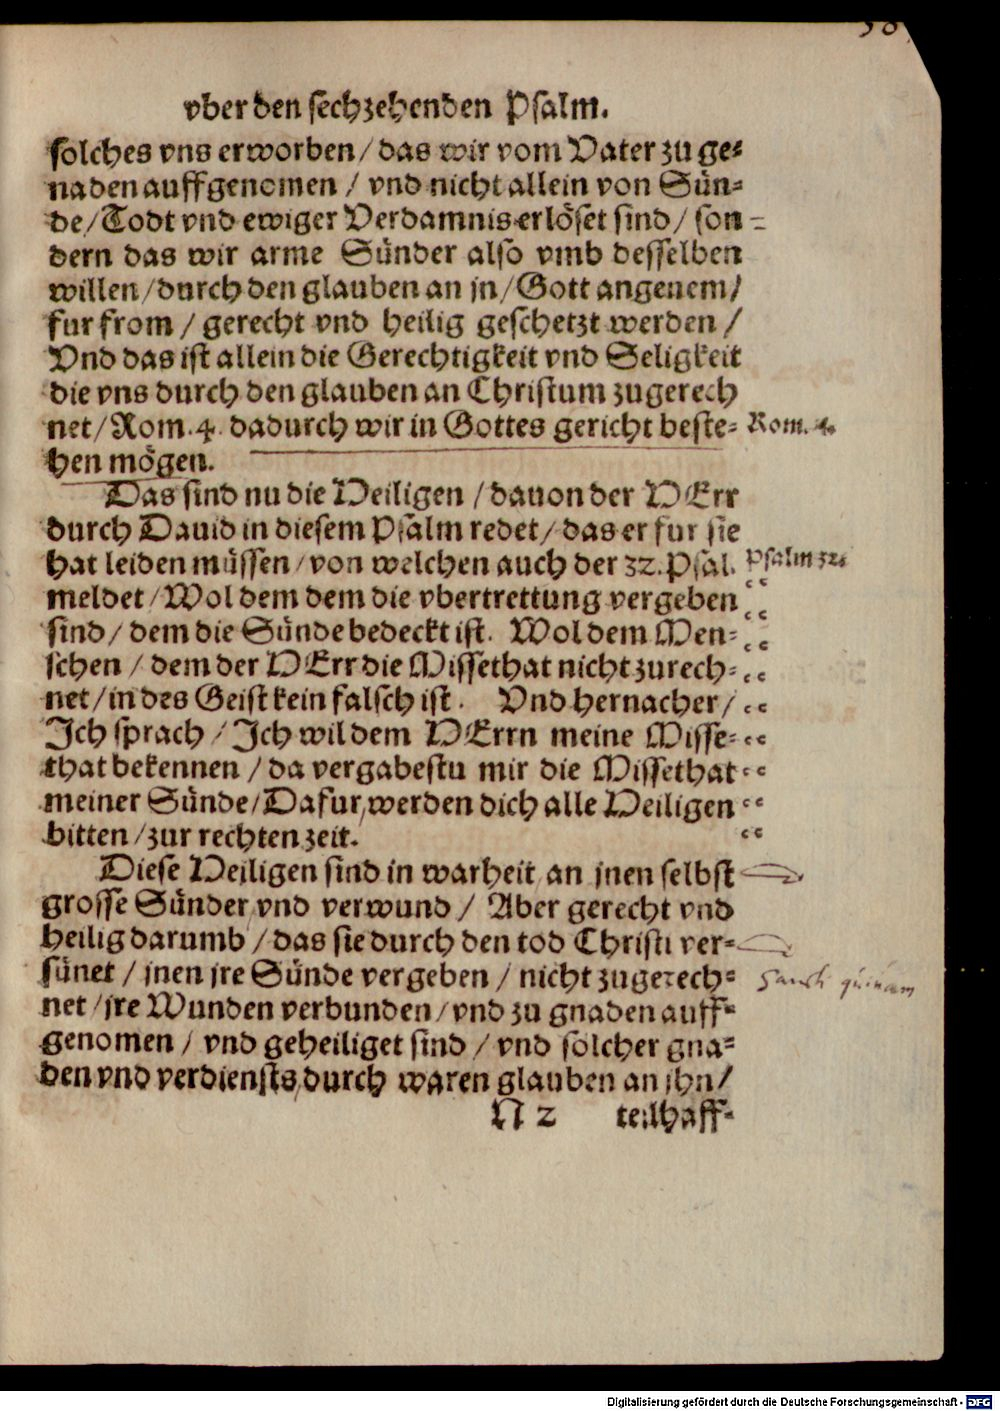 vber den sechzehenden Psalm.
solches vns erworben / das wir vom Vater zu ge-
naden auffgenomen / vnd nicht allein von Sün-
de / Todt vnd ewiger Verdamnis erlöset sind / son-
dern das wir arme Sünder also vmb desselben
willen / durch den glauben an jn / Gott angenem /
fur from / gerecht vnd heilig geschetzt werden /
Vnd das ist allein die Gerechtigkeit vnd Seligkeit
die vns durch den glauben an Christum zugerech
net / Rom. 4. dadurch wir in Gottes gericht beste- Rom. 4.
hen mögen.
Das sind nu die Heiligen / dauon der HErr
durch Dauid in diesem Psalm redet / das er fur sie
hat leiden müssen / von welchen auch der 32. Psal. Psalm 32.
meldet / Wol dem dem die vbertrettung vergeben
sind / dem die Sünde bedeckt ist. Wol dem Men-
schen / dem der HErr die Missethat nicht zurech-
net / in des Geist kein falsch ist. Vnd hernacher /
Ich sprach / Ich wil dem HErrn meine Misse-
that bekennen / da vergabestu mir die Missethat
meiner Sünde / Dafur werden dich alle Heiligen
bitten / zur rechten zeit.
Diese Heiligen sind in warheit an jnen selbst
grosse Sünder vnd verwund / Aber gerecht vnd
heilig darumb / das sie durch den tod Christi ver-
sünet / jnen jre Sünde vergeben / nicht zugerech-
net / jre Wunden verbunden / vnd zu gnaden auff-
genomen / vnd geheiliget sind / vnd solcher gna-
den vnd verdiensts durch waren glauben an jhn /
N 2 teilhaff-
Digitalisierung gefördert durch die Deutsche Forschungsgemeinschaft - DFG